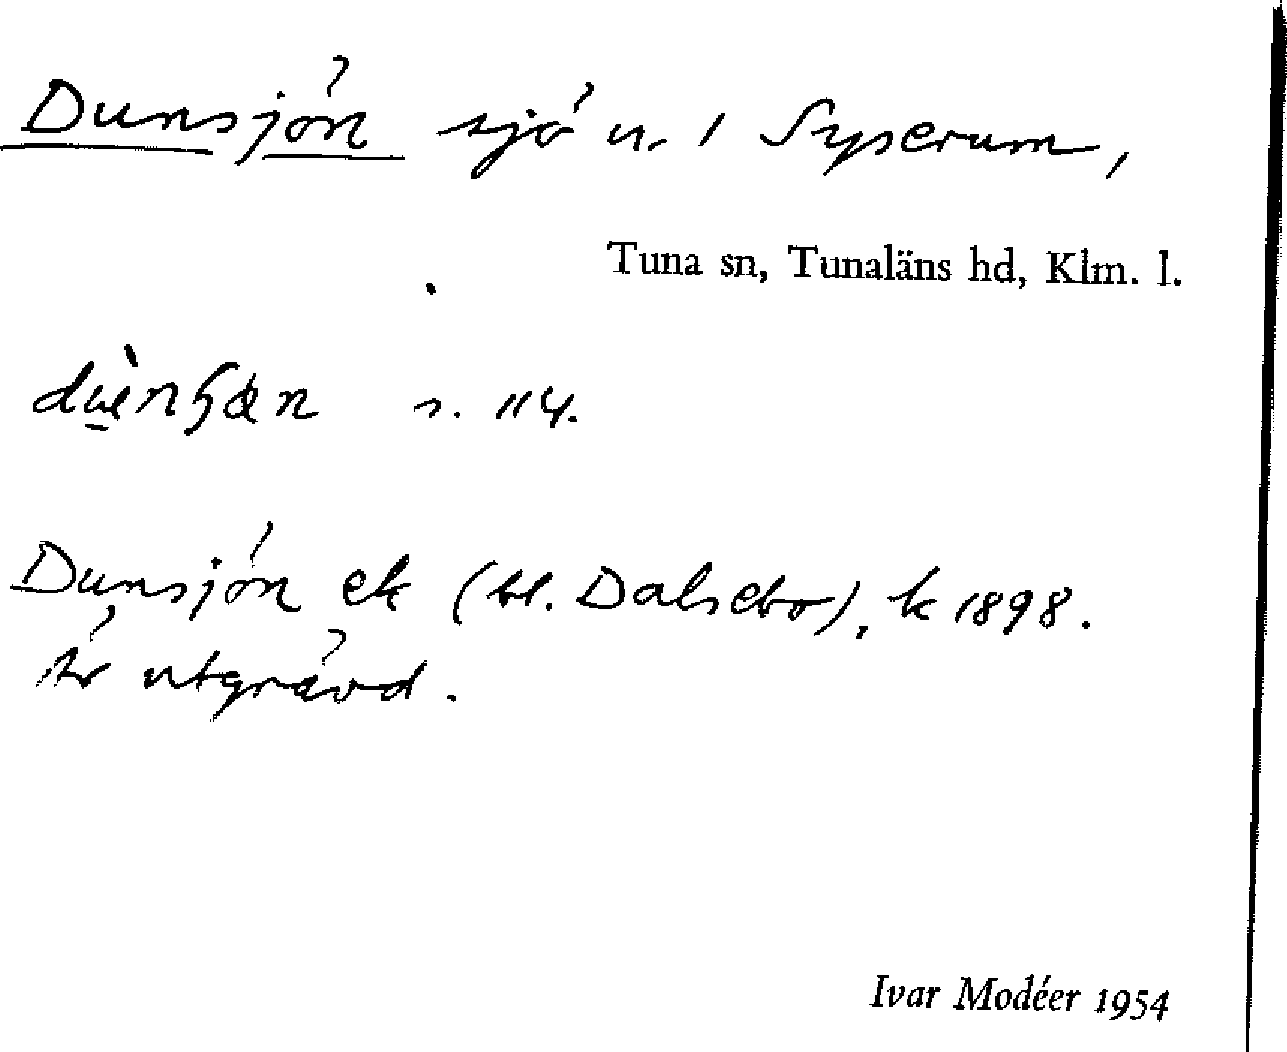 Dunsjön sjö u. / Syserum,
Tuna sn, Tunaläns hd, Klm. l.
s. 114.
Dunsjön ek (bl. Dalsebo), k 1898.
är utgrävd.
Ivar Modéer 1954